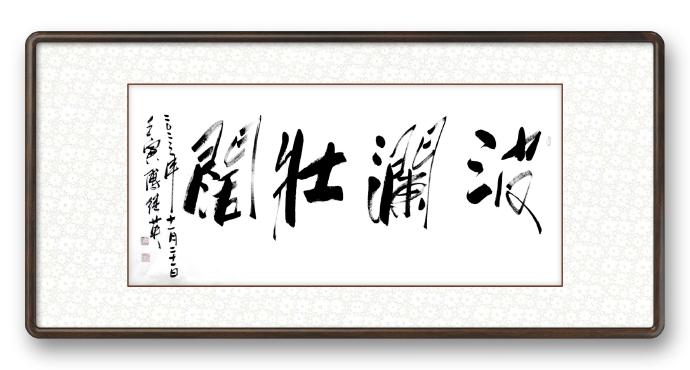 波瀾壮闊
二〇二二年十一月二十二日
壬寅傅继英